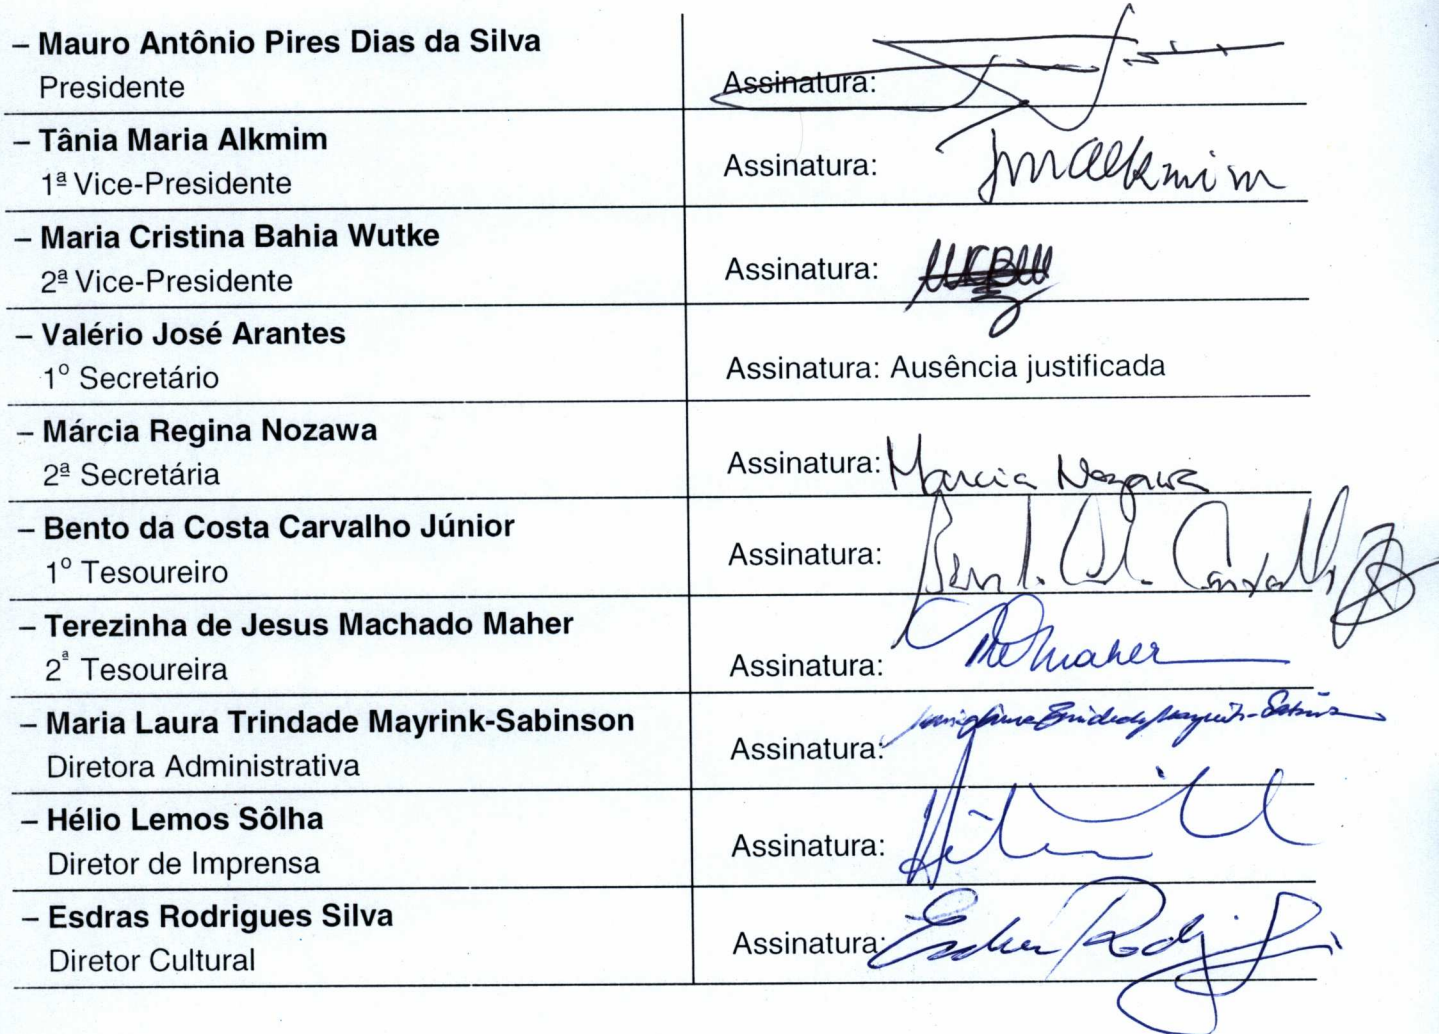 – Mauro Antônio Pires Dias da Silva
Presidente
Assinatura:
– Tânia Maria Alkmim
1ª Vice-Presidente
Assinatura: TMAlkmim
– Maria Cristina Bahia Wutke
2ª Vice-Presidente
Assinatura: MCBW
– Valério José Arantes
1º Secretário
Assinatura: Ausência justificada
– Márcia Regina Nozawa
2ª Secretária
Assinatura: Marcia Nozawa
– Bento da Costa Carvalho Júnior
1º Tesoureiro
Assinatura:
– Terezinha de Jesus Machado Maher
2ª Tesoureira
Assinatura: Maher
– Maria Laura Trindade Mayrink-Sabinson
Diretora Administrativa
Assinatura:
– Hélio Lemos Sôlha
Diretor de Imprensa
Assinatura:
– Esdras Rodrigues Silva
Diretor Cultural
Assinatura: